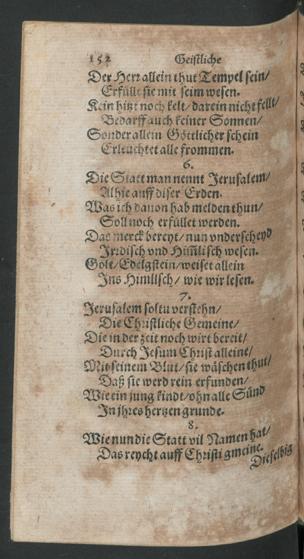 152 Geistliche
Der Herr allein thut Tempel sein/
Erfüllt sie mit seim wesen.
Kein hitz noch kelt/ darein nicht fellt/
Bedarff auch keiner Sonnen/
Sonder allein Göttlicher schein
Erleuchtet alle frommen.
6.
Die Statt man nennt Jerusalem/
Alhie auff diser Erden.
Was ich dauon hab melden thun/
Soll noch erfüllet werden.
Das merck bereyt/ nun vnderscheyd
Irrdisch vnd Him̃lisch wesen.
Golt/ Edelgstein/ weiset allein
Ins Himlisch/ wie wir lesen.
7.
Jerusalem soltu verstehn/
Die Christliche Gemeine/
Die in der zeit noch wirt bereit/
Durch Jesum Christ alleine/
Mit seinem Blut/ sie wäschen thut/
Daß sie werd rein erfunden/
Wie ein jung kindt/ ohn alle Sünd
In jhres hertzen grunde.
8.
Wie nun die Statt vil Namen hat/
Das reycht auff Christi gmeine.
Dieselbig